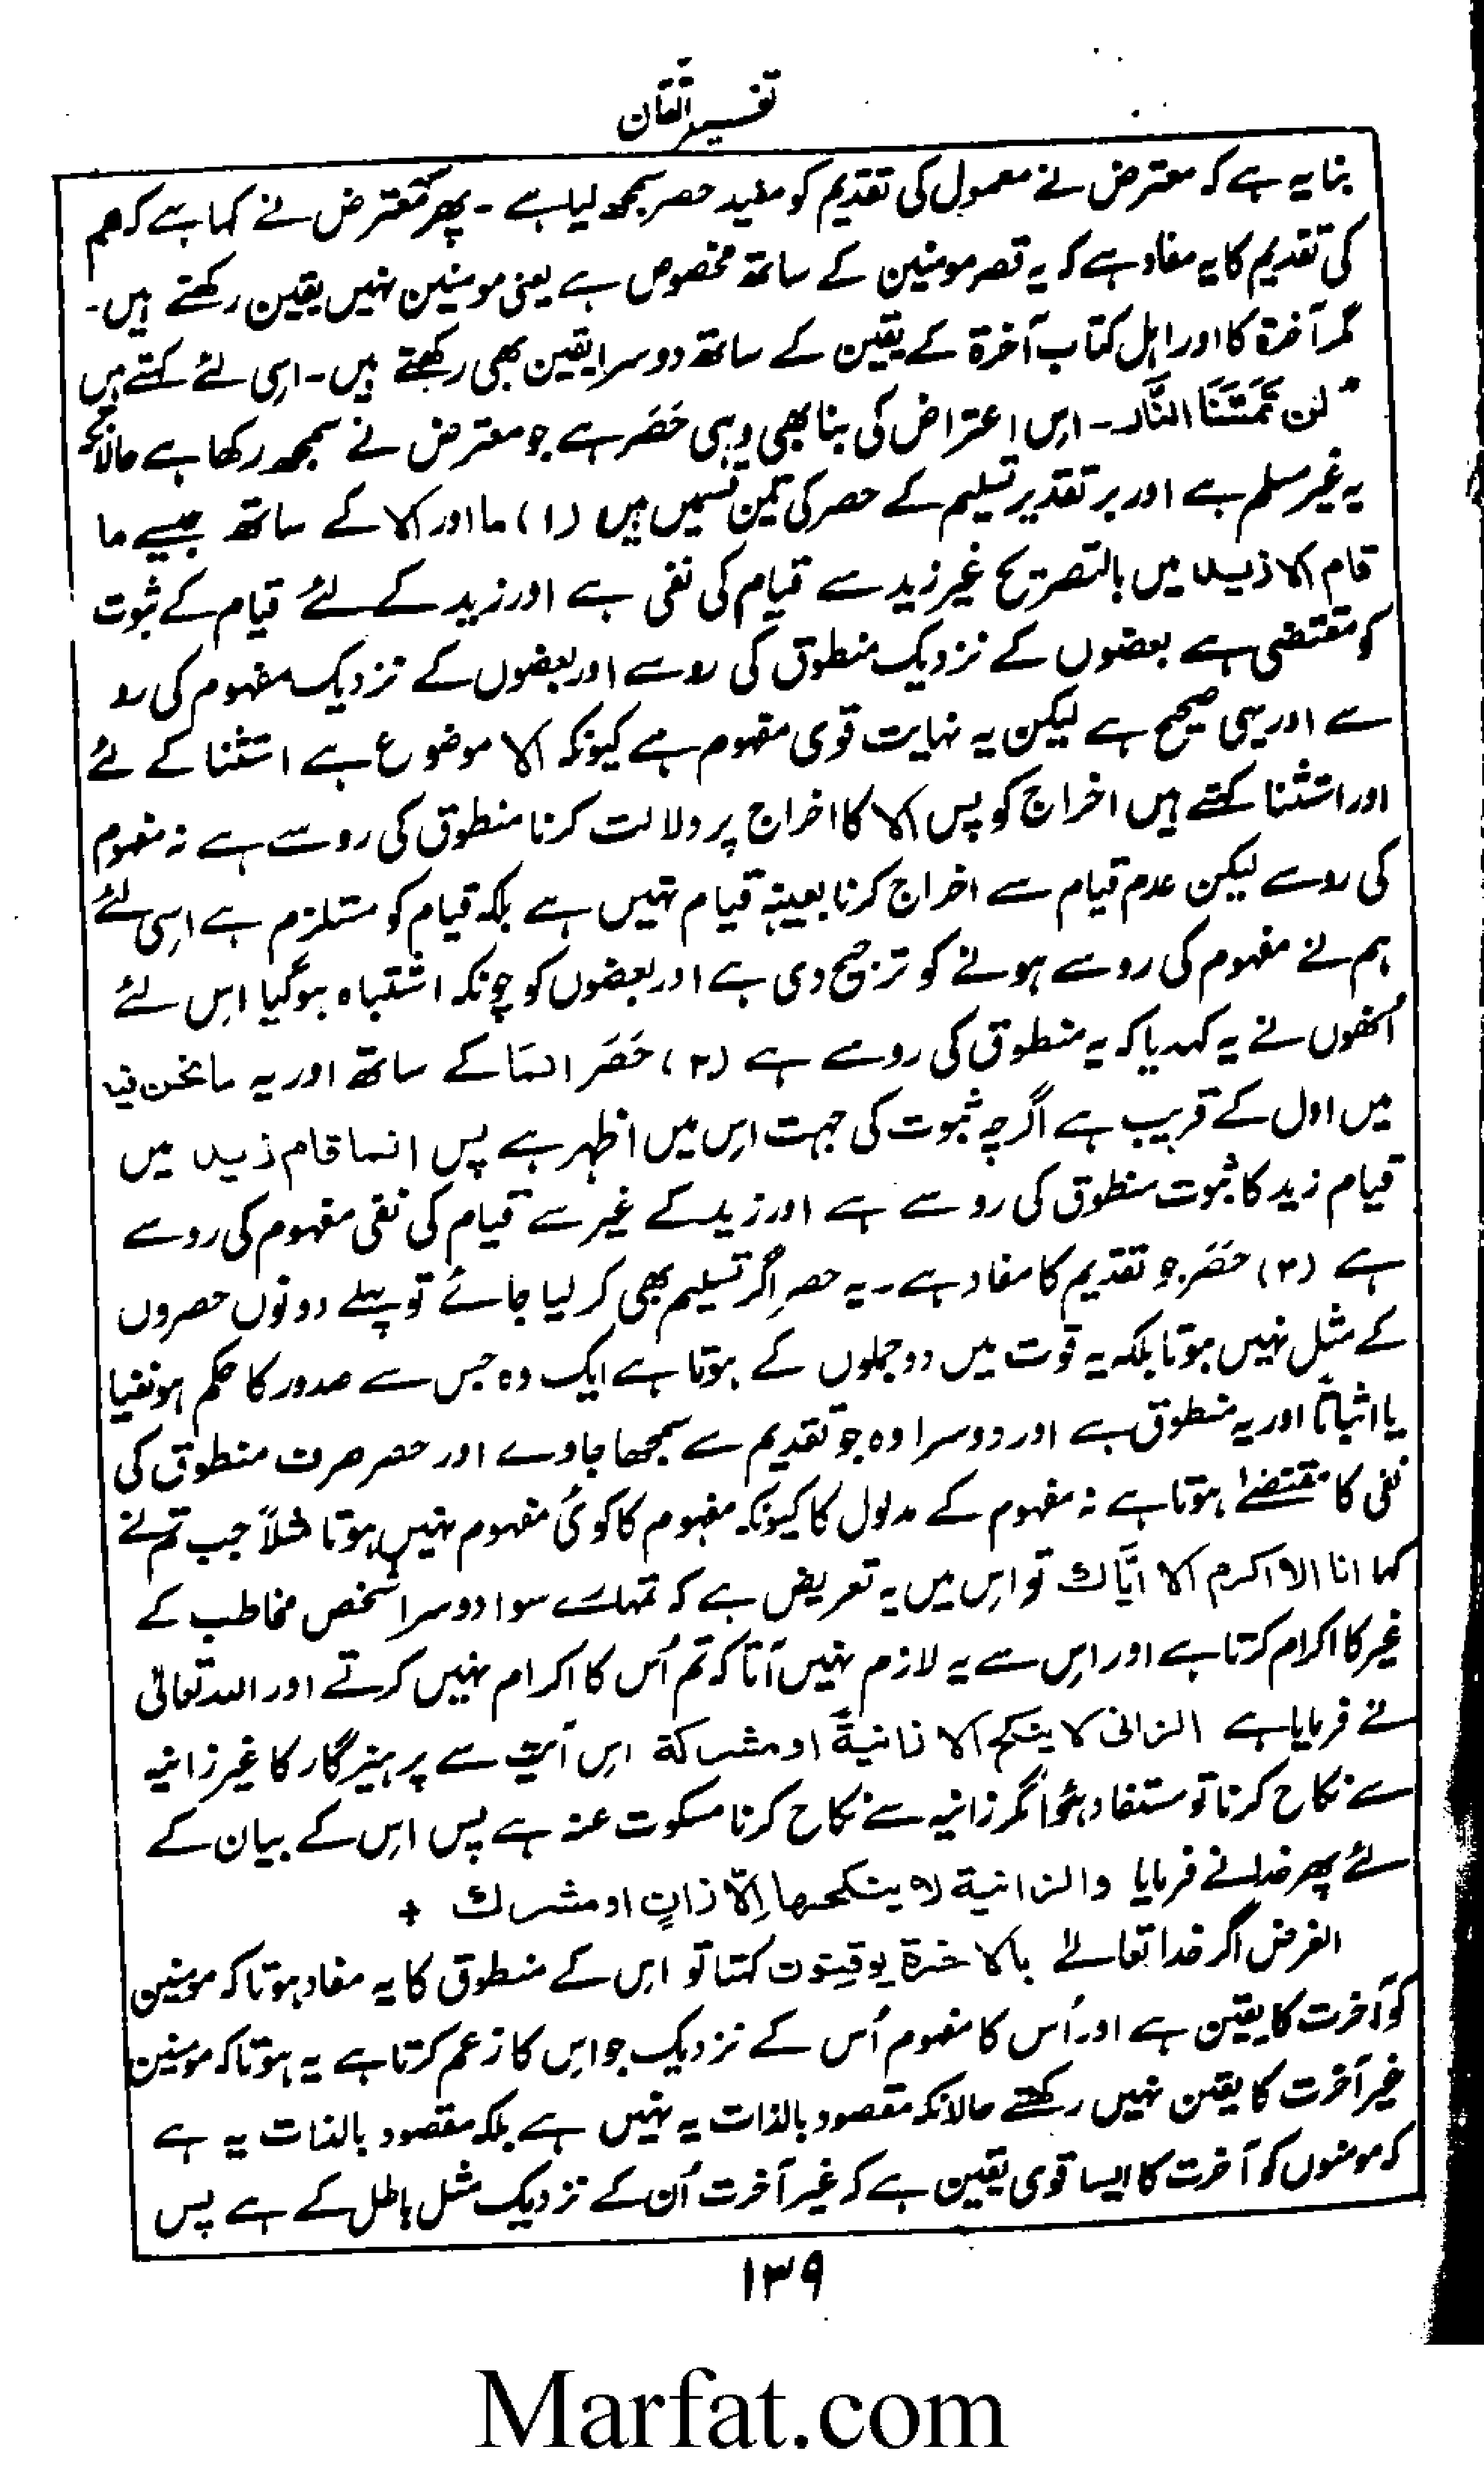 تفسیر اتقان
بنا یہ ہے کہ معترض نے معمول کی تقدیم کو مفید حصر سمجھ لیا ہے ۔ پھر معترض نے کہا ہے کہ ھم
کی تقدیم کا یہ مفاد ہے کہ یہ قصر مومنین کے ساتھ مخصوص ہے یعنی مومنین نہیں یقین رکھتے ہیں ۔
مگر آخرۃ کا اور اہل کتاب آخرۃ کے یقین کے ساتھ دوسرا یقین بھی رکھتے ہیں ۔ اسی لئے کہتے ہیں
لن تَمَسَّنَا النَّار ۔ اس اعتراض کی بنا بھی وہی حَصَر ہے جو معترض نے سمجھ رکھا ہے حالانکہ
یہ غیر مسلم ہے اور بر تقدیر تسلیم کے حصر کی تین قسمیں ہیں (۱) ما اور الا کے ساتھ جیسے ما
قام الا زید میں بالتصریح غیر زید سے قیام کی نفی ہے اور زید کے لئے قیام کے ثبوت
کو مقتضی ہے بعضوں کے نزدیک منطوق کی رو سے اور بعضوں کے نزدیک مفہوم کی رو
سے اور یہی صحیح ہے لیکن یہ نہایت قوی مفہوم ہے کیونکہ الا موضوع ہے استثنا کے لئے
اور استثنا کہتے ہیں اخراج کو پس الا کا اخراج پر دلالت کرنا منطوق کی رو سے ہے نہ مفہوم
کی رو سے لیکن عدم قیام سے اخراج کرنا بعینہٖ قیام نہیں ہے بلکہ قیام کو مستلزم ہے اسی لئے
ہم نے مفہوم کی رو سے ہونے کو ترجیح دی ہے اور بعضوں کو چونکہ اشتباہ ہو گیا اس لئے
اُنھوں نے یہ کہدیا کہ یہ منطوق کی رو سے ہے (۲) حَصَر انمَا کے ساتھ اور یہ مانحن فیہ
میں اول کے قریب ہے اگرچہ ثبوت کی جہت اس میں اظہر ہے پس انما قام زید میں
قیام زید کا ثبوت منطوق کی رو سے ہے اور زید کے غیر سے قیام کی نفی مفہوم کی رو سے
ہے (۳) حَصَر جو تقدیم کا مفاد ہے ۔ یہ حصر اگر تسلیم بھی کر لیا جائے تو پہلے دونوں حصروں
کے مثل نہیں ہوتا بلکہ یہ قوت میں دو جملوں کے ہوتا ہے ایک وہ جس سے صدور کا حکم ہو نفیا
یا اثباتًا اور یہ منطوق ہے اور دوسرا وہ جو تقدیم سے سمجھا جاوے اور حصر صرف منطوق کی
نفی کا مقتضےٰ ہوتا ہے نہ مفہوم کے مدلول کا کیونکہ مفہوم کا کوئی مفہوم نہیں ہوتا مثلاً جب تم نے
کہا انا الا اکرم الا ایَّاك تو اس میں یہ تعریض ہے کہ تمہارے سوا دوسرا شخص مخاطب کے
غیر کا اکرام کرتا ہے اور اس سے یہ لازم نہیں آتا کہ تم اُس کا اکرام نہیں کرتے اور اللہ تعالیٰ
نے فرمایا ہے الزانی لا ینکح الا زانیةً او مشرکة اس آیت سے پرہیزگار کا غیر زانیہ
سے نکاح کرنا تو مستفاد ہُوا مگر زانیہ سے نکاح کرنا مسکوت عنہ ہے پس اس کے بیان کے
لئے پھر خدا نے فرمایا والزانیة لا ینکحہا اِلّا زانٍ او مشرك +
الغرض اگر خدا تعالےٰ بالاخرة یوقنون کہتا تو اس کے منطوق کا یہ مفاد ہوتا کہ مومنین
کو آخرت کا یقین ہے اور اُس کا مفہوم اُس کے نزدیک جو اس کا زعم کرتا ہے یہ ہوتا کہ مومنین
غیر آخرت کا یقین نہیں رکھتے حالانکہ مقصود بالذات یہ نہیں ہے بلکہ مقصود بالذات یہ ہے
کہ مومنوں کو آخرت کا ایسا قوی یقین ہے کہ غیر آخرت اُن کے نزدیک مثل باطل کے ہے پس
۱۳۹
Marfat.com